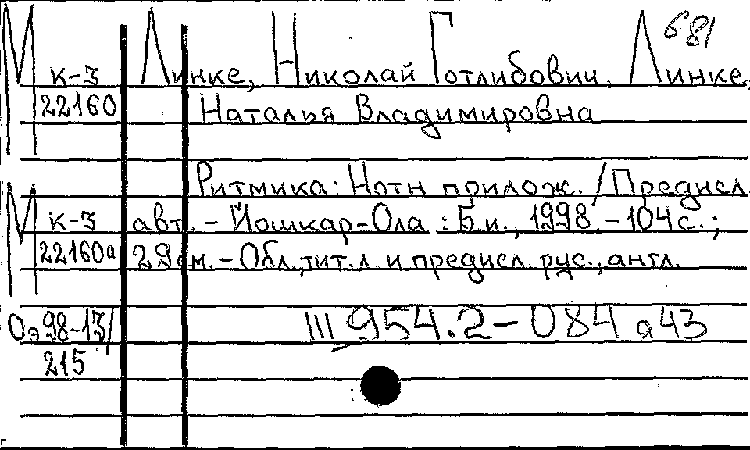 681
М к-3 Линке, Николай Готлибович. Линке,
22160 Наталья Владимировна
Ритмика: Нотн прилож. /Предисл.
М к-3 авт. - Йошкар-Ола : Б.и., 1998 - 104с. ;
22160а 29 см. - Обл., тит. л и предисл. рус., англ.
Оэ 98-13/ III 954.2-084 а43
215